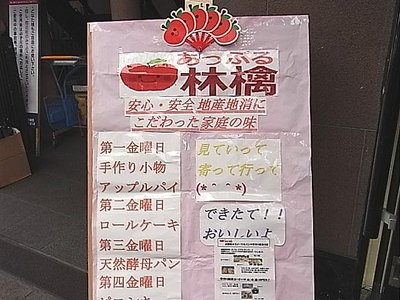 あっぷる
林檎
安心・安全 地産地消に
こだわった家庭の味
第一金曜日
手作り小物
アップルパイ
第二金曜日
ロールケーキ
第三金曜日
天然酵母パン
第四金曜日
見ていって
寄って行って
(*＾＾*)
できたて!!
おいしいよ